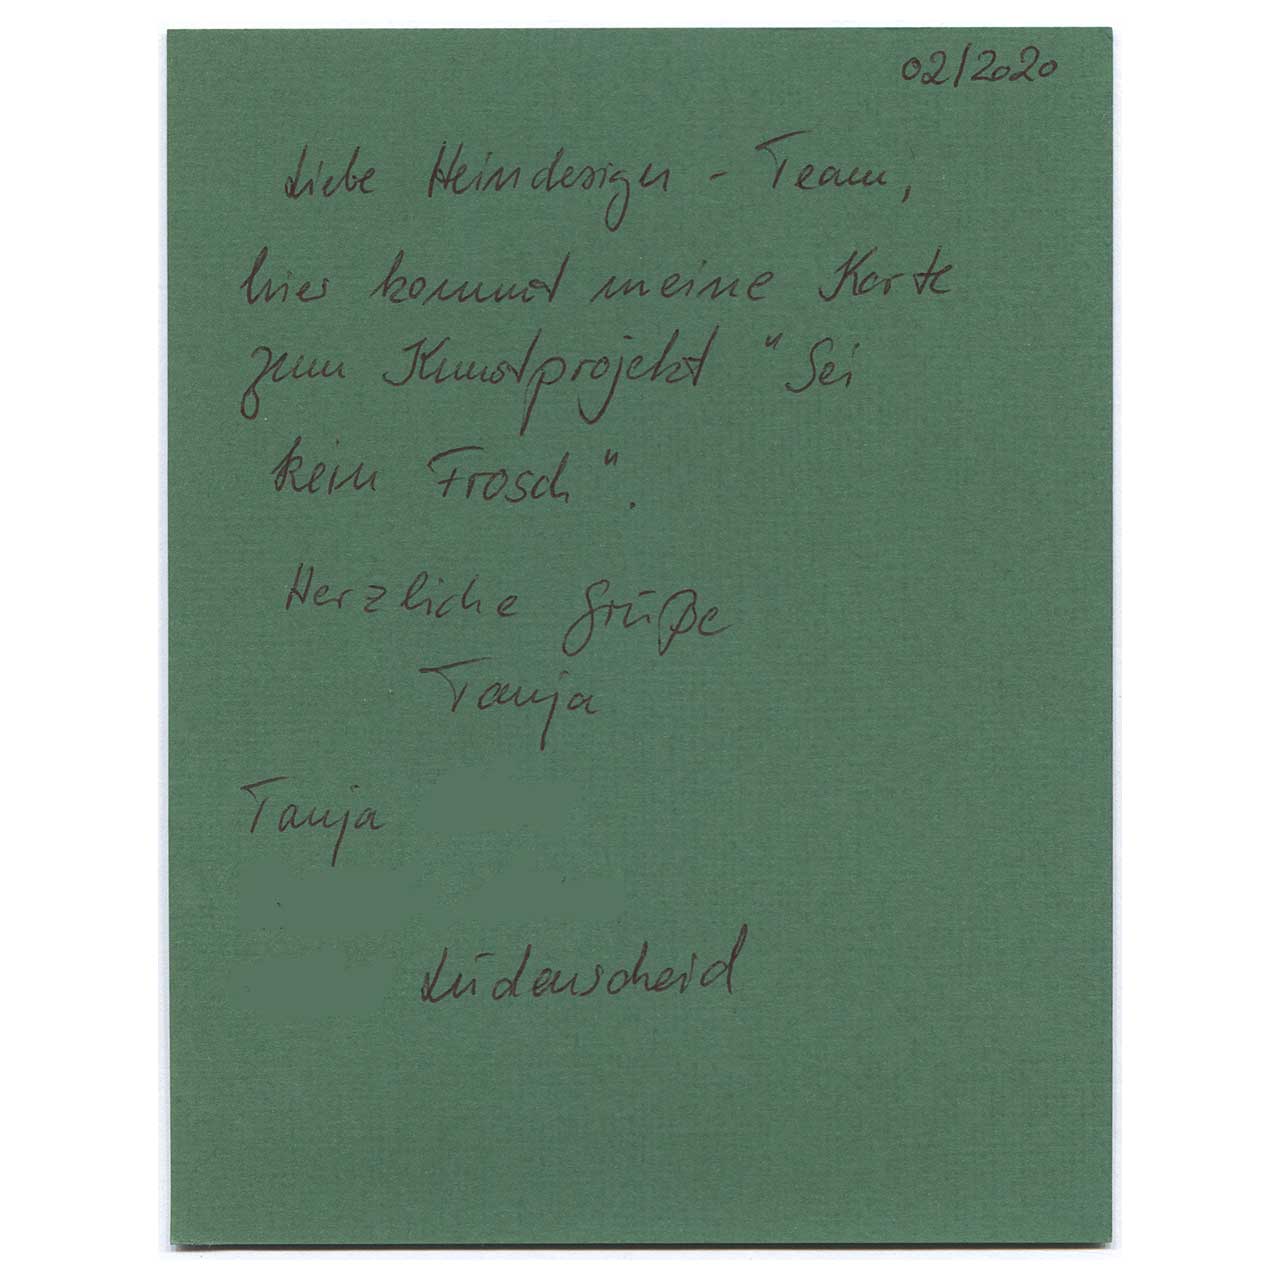 02/2020
Liebe Heindesign - Team,
hier kommt meine Karte
zum Kunstprojekt "Sei
kein Frosch".
Herzliche Grüße
Tanja
Tanja
Lüdenscheid